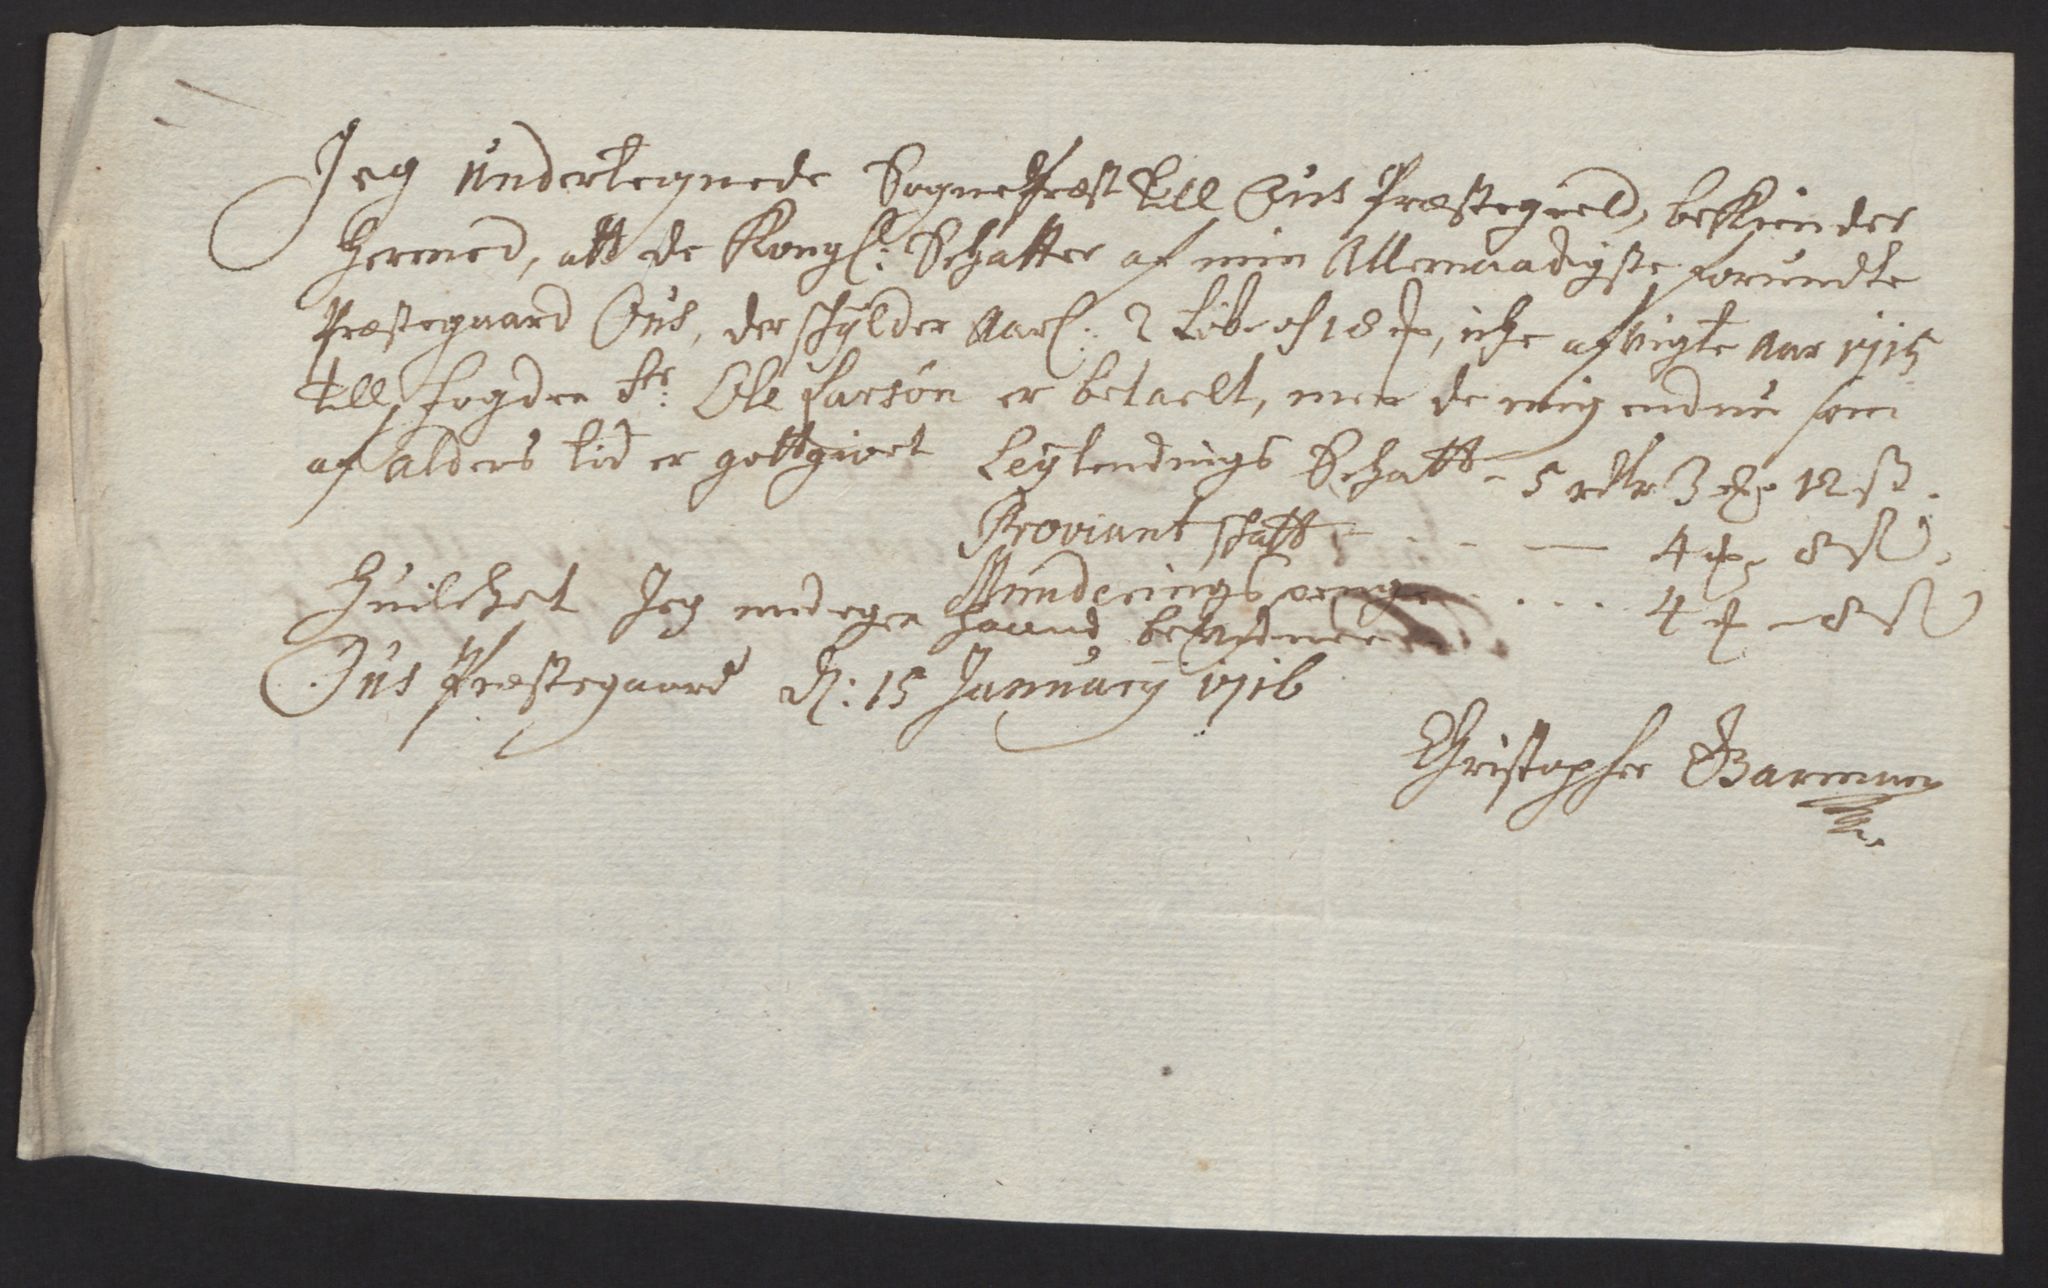 Jeg Undertegnede Sognepræst till Ous Præstegield, bekiender
hermed, att de Kongl: Schatter af min Allernaadigste forundte
Præstegaard Ous, der schylder Aarl: 2 Løbe og 18 , iche afvigte Aar 1715
till fogden Sr: Ole Larsøn er betaelt, men de mig endnu som
af alders tid er gottgiort Leylendings Schatt - 5 rdlr 3 12 ß.
Proviant schatt - - - 4 8 ß
Munderings penge . . . . 4 - 8 ß
huilchet Jeg med egen haand bekræfter
Ous Præstegaard d: 15 January 1716
Christopher Garmann